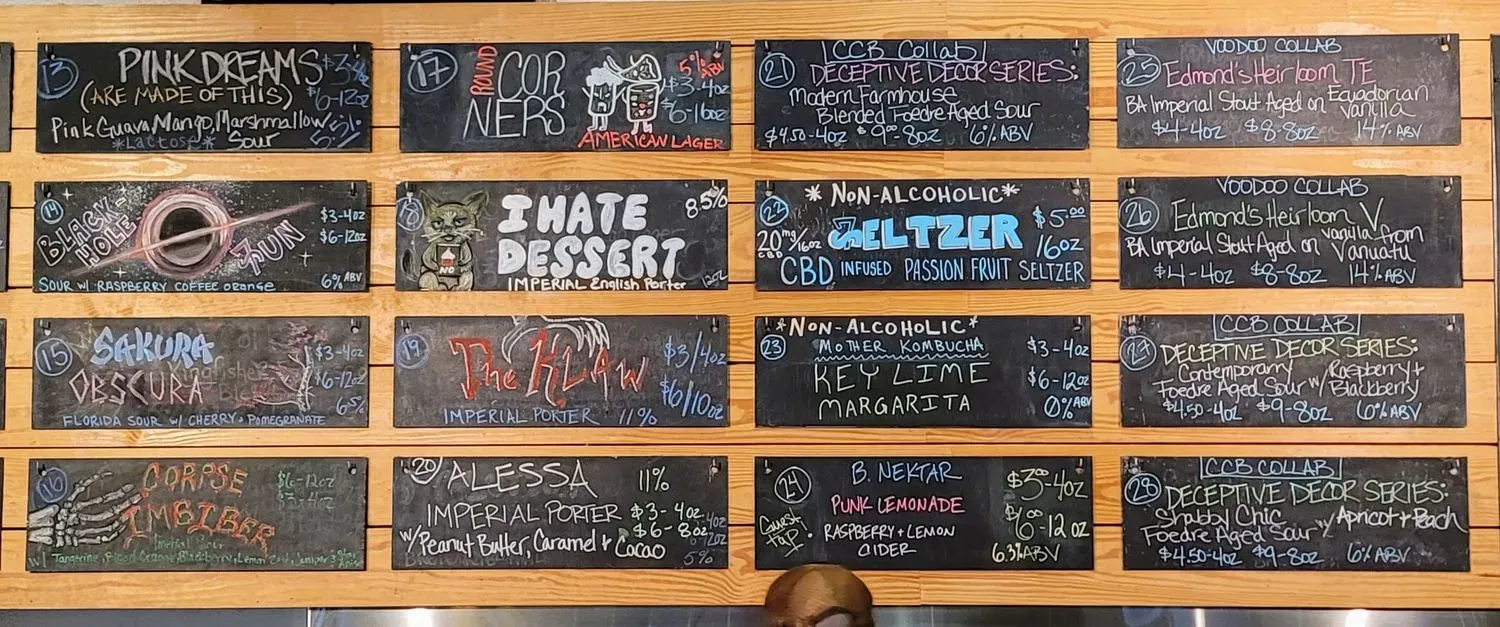 13
PINK DREAMS $3-4oz
(ARE MADE OF THIS) $6-12oz
Pink Guava, Mango, Marshmallow
*Lactose* Sour 5%
14
BLACK-HOLE
$3-4oz
$6-12oz
SUN
SOUR W/ RASPBERRY COFFEE orange 6% ABV
15
SAKURA
$3-4oz
OBSCURA $6-12oz
6.5%
FLORIDA SOUR W/ CHERRY + POMEGRANATE
16
CORPSE $6-12oz
$3-4oz
IMBIBER
Imperial Sour
W/ Tangerine, Blood Orange, Blackberry, Lemon Zest, Juniper
17
ROUND
CORNERS
5% ABV
$3-4oz
$6-16oz
AMERICAN LAGER
18
I HATE 8.5%
DESSERT
NO
IMPERIAL English Porter 12oz
19
The KLAW $3/4oz
$6/10oz
IMPERIAL PORTER 11%
20 ALESSA 11%
IMPERIAL PORTER $3-4oz
W/ Peanut Butter, Caramel + Cocao $6-8oz
5%
21
CCB Collab
DECEPTIVE DECOR SERIES:
Modern Farmhouse
Blended Foedre Aged Sour
$4.50-4oz $9.00-8oz 6% ABV
22
*NON-ALCOHOLIC*
SELTZER $5.00
20mg/16oz CBD 16oz
CBD INFUSED PASSION FRUIT SELTZER
*NON-ALCOHOLIC*
23 MOTHER KOMBUCHA $3-4oz
KEY LIME $6-12oz
MARGARITA 0% ABV
24
B. NEKTAR $3.00-4oz
PUNK LEMONADE
Guest Tap.
RASPBERRY + LEMON $6.00-12oz
CIDER 6.3% ABV
VOODOO COLLAB
25 Edmond's Heirloom TE
BA Imperial Stout Aged on Ecuadorian
Vanilla
$4-4oz $8-8oz 14% ABV
VOODOO COLLAB
26 Edmond's Heirloom V
BA Imperial Stout Aged on vanilla from
Vanuatu
$4-4oz $8-8oz 14% ABV
CCB COLLAB
27 DECEPTIVE DECOR SERIES:
Contemporary
Foedre Aged Sour w/ Raspberry +
Blackberry
$4.50-4oz $9-8oz 6% ABV
CCB COLLAB
28 DECEPTIVE DECOR SERIES:
Shabby Chic
Foedre Aged Sour w/ Apricot + Peach
$4.50-4oz $9-8oz 6% ABV